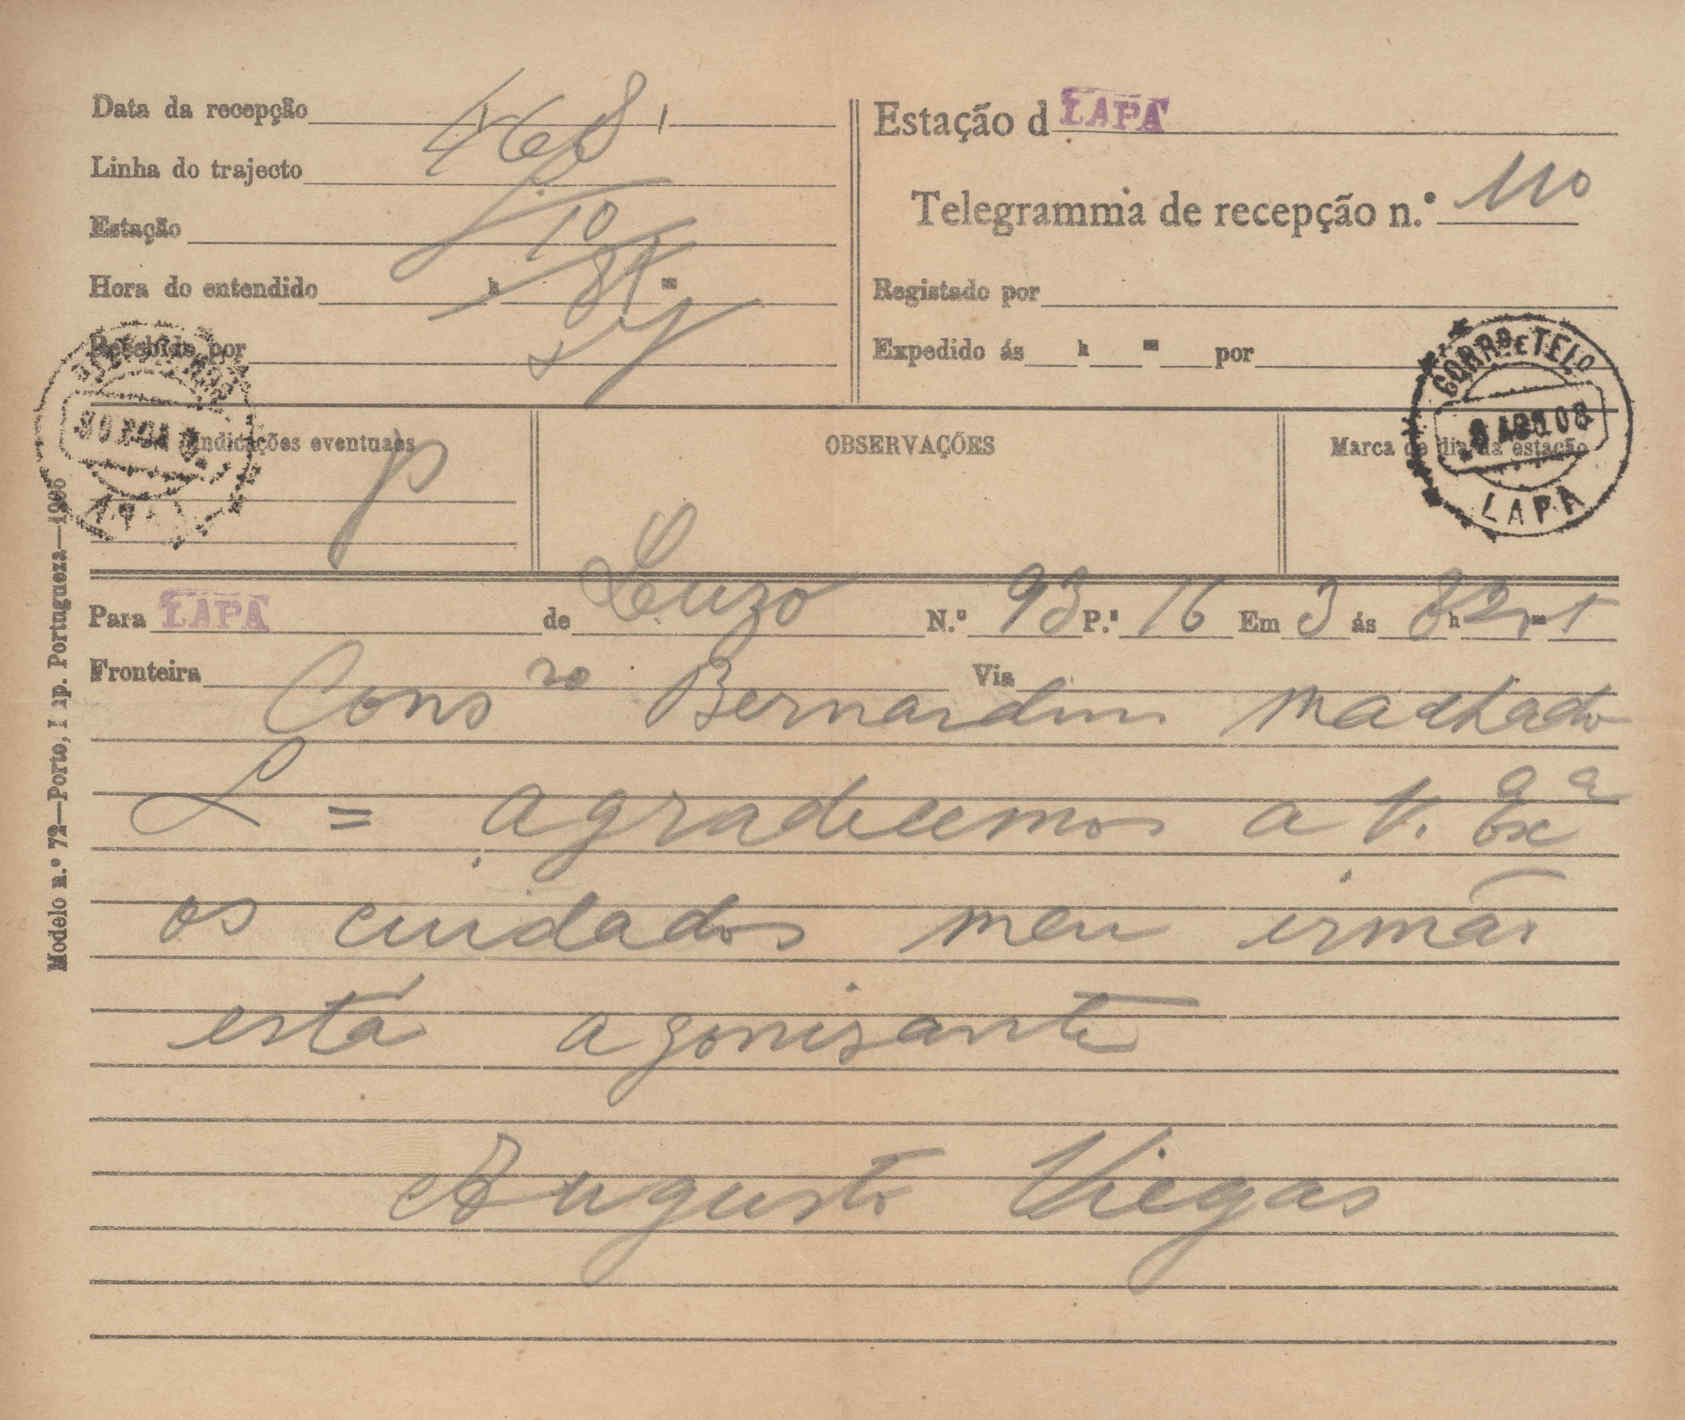 Data da recepção
Linha do trajecto
Estação
Hora do entendido h m
Recebido por
Estação d LAPA
Telegramma de recepção n.º 110
Registado por
Expedido ás h m por
Indicações eventuaes
p
OBSERVAÇÕES
Marca do dia da estação
CORRO E TELO
LAPA
Modelo n.º 72—Porto, Imp. Portugueza—1906
Para LAPA de Luzo N.º 93 P.s 16 Em 3 ás
Fronteira Via
Consro Bernardino Machado
L = Agradecemos a V. Exa
os cuidados meu irmão
está agonisante
Augusto Viegas